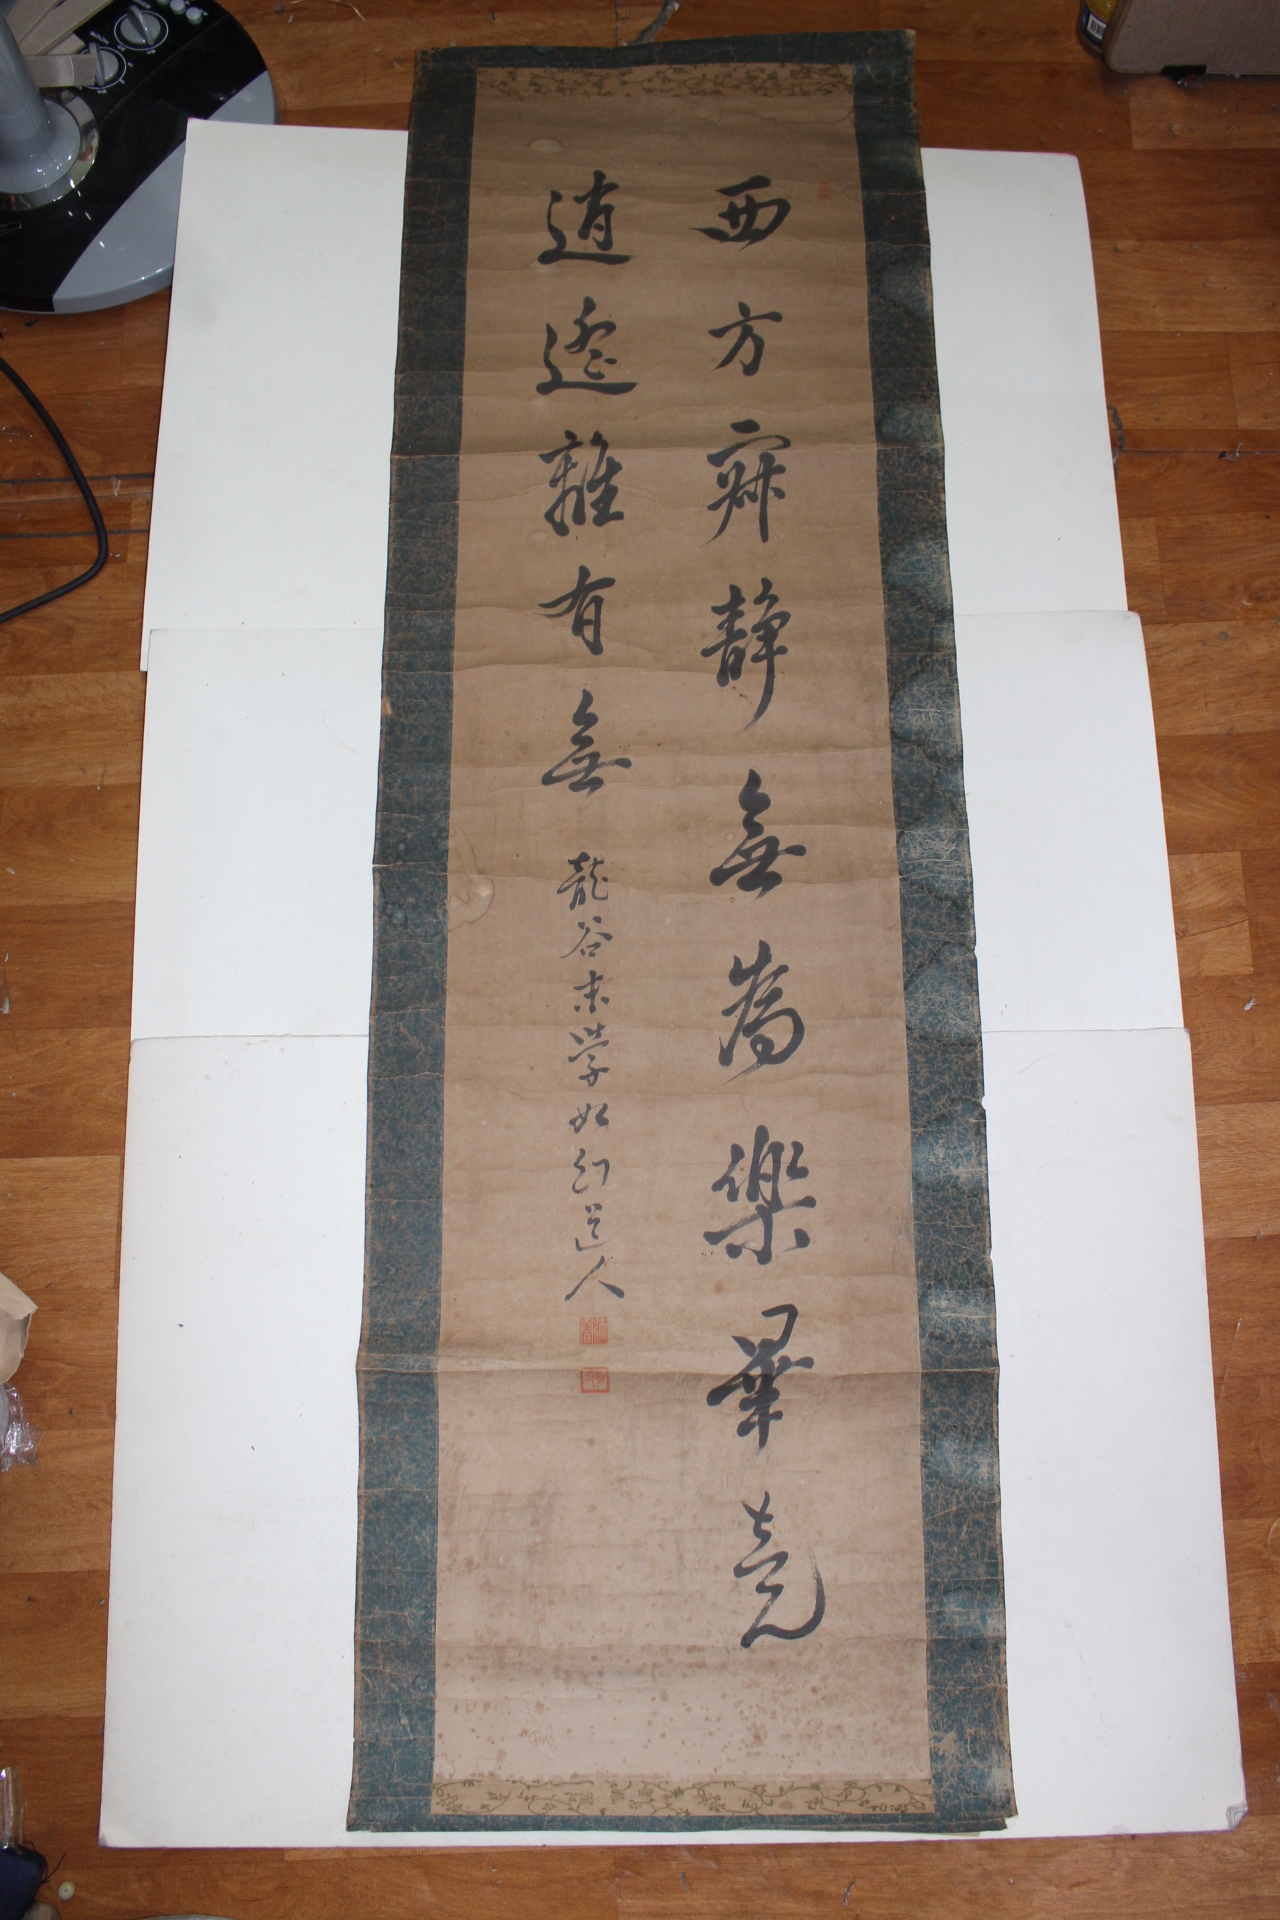 西方寂靜無為樂畢竟
逍遙離有無 龍谷末學如幻道人